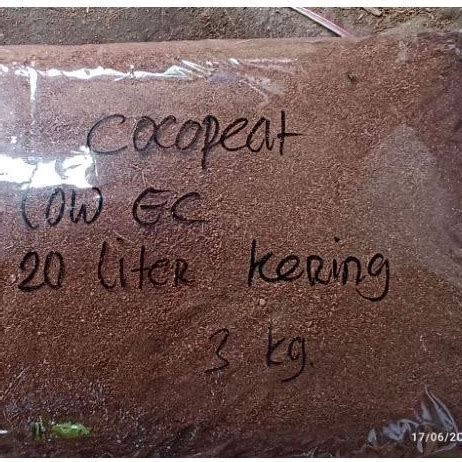 Cocopeat
LOW EC
20 liter kering
3 kg.
17/06/20